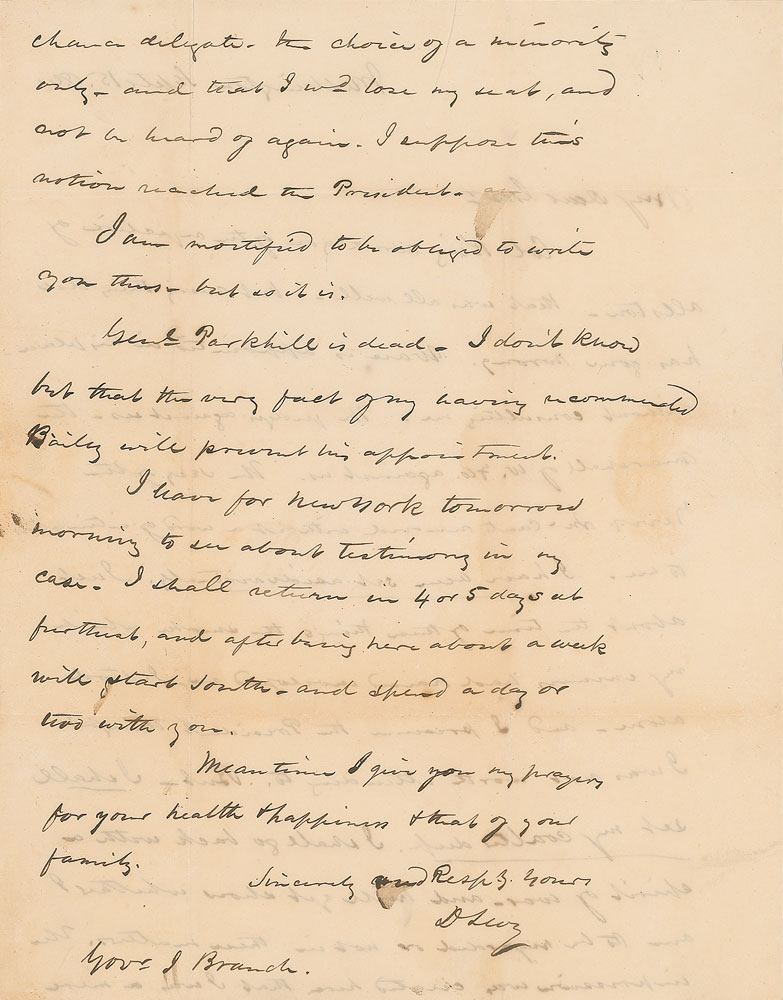 chance delegate - the choice of a minority
only - and that I wd lose my seat, and
not be heard of again - I suppose this
notion reached the President -
I am mortified to be obliged to write
you thus - but so it is.
Genl Parkhill is dead - I don't know
but that the very fact of my having recommended
Bailey will prevent his appointment.
I leave for New York tomorrow
morning to see about testimony in my
case - I shall return in 4 or 5 days at
furthest, and after being here about a week
will start South - and spend a day or
two with you.
Meantime I give you my prayers
for your health & happiness & that of your
family.
Sincerely and Respy. Yours
D Levy
Govr J Branch.